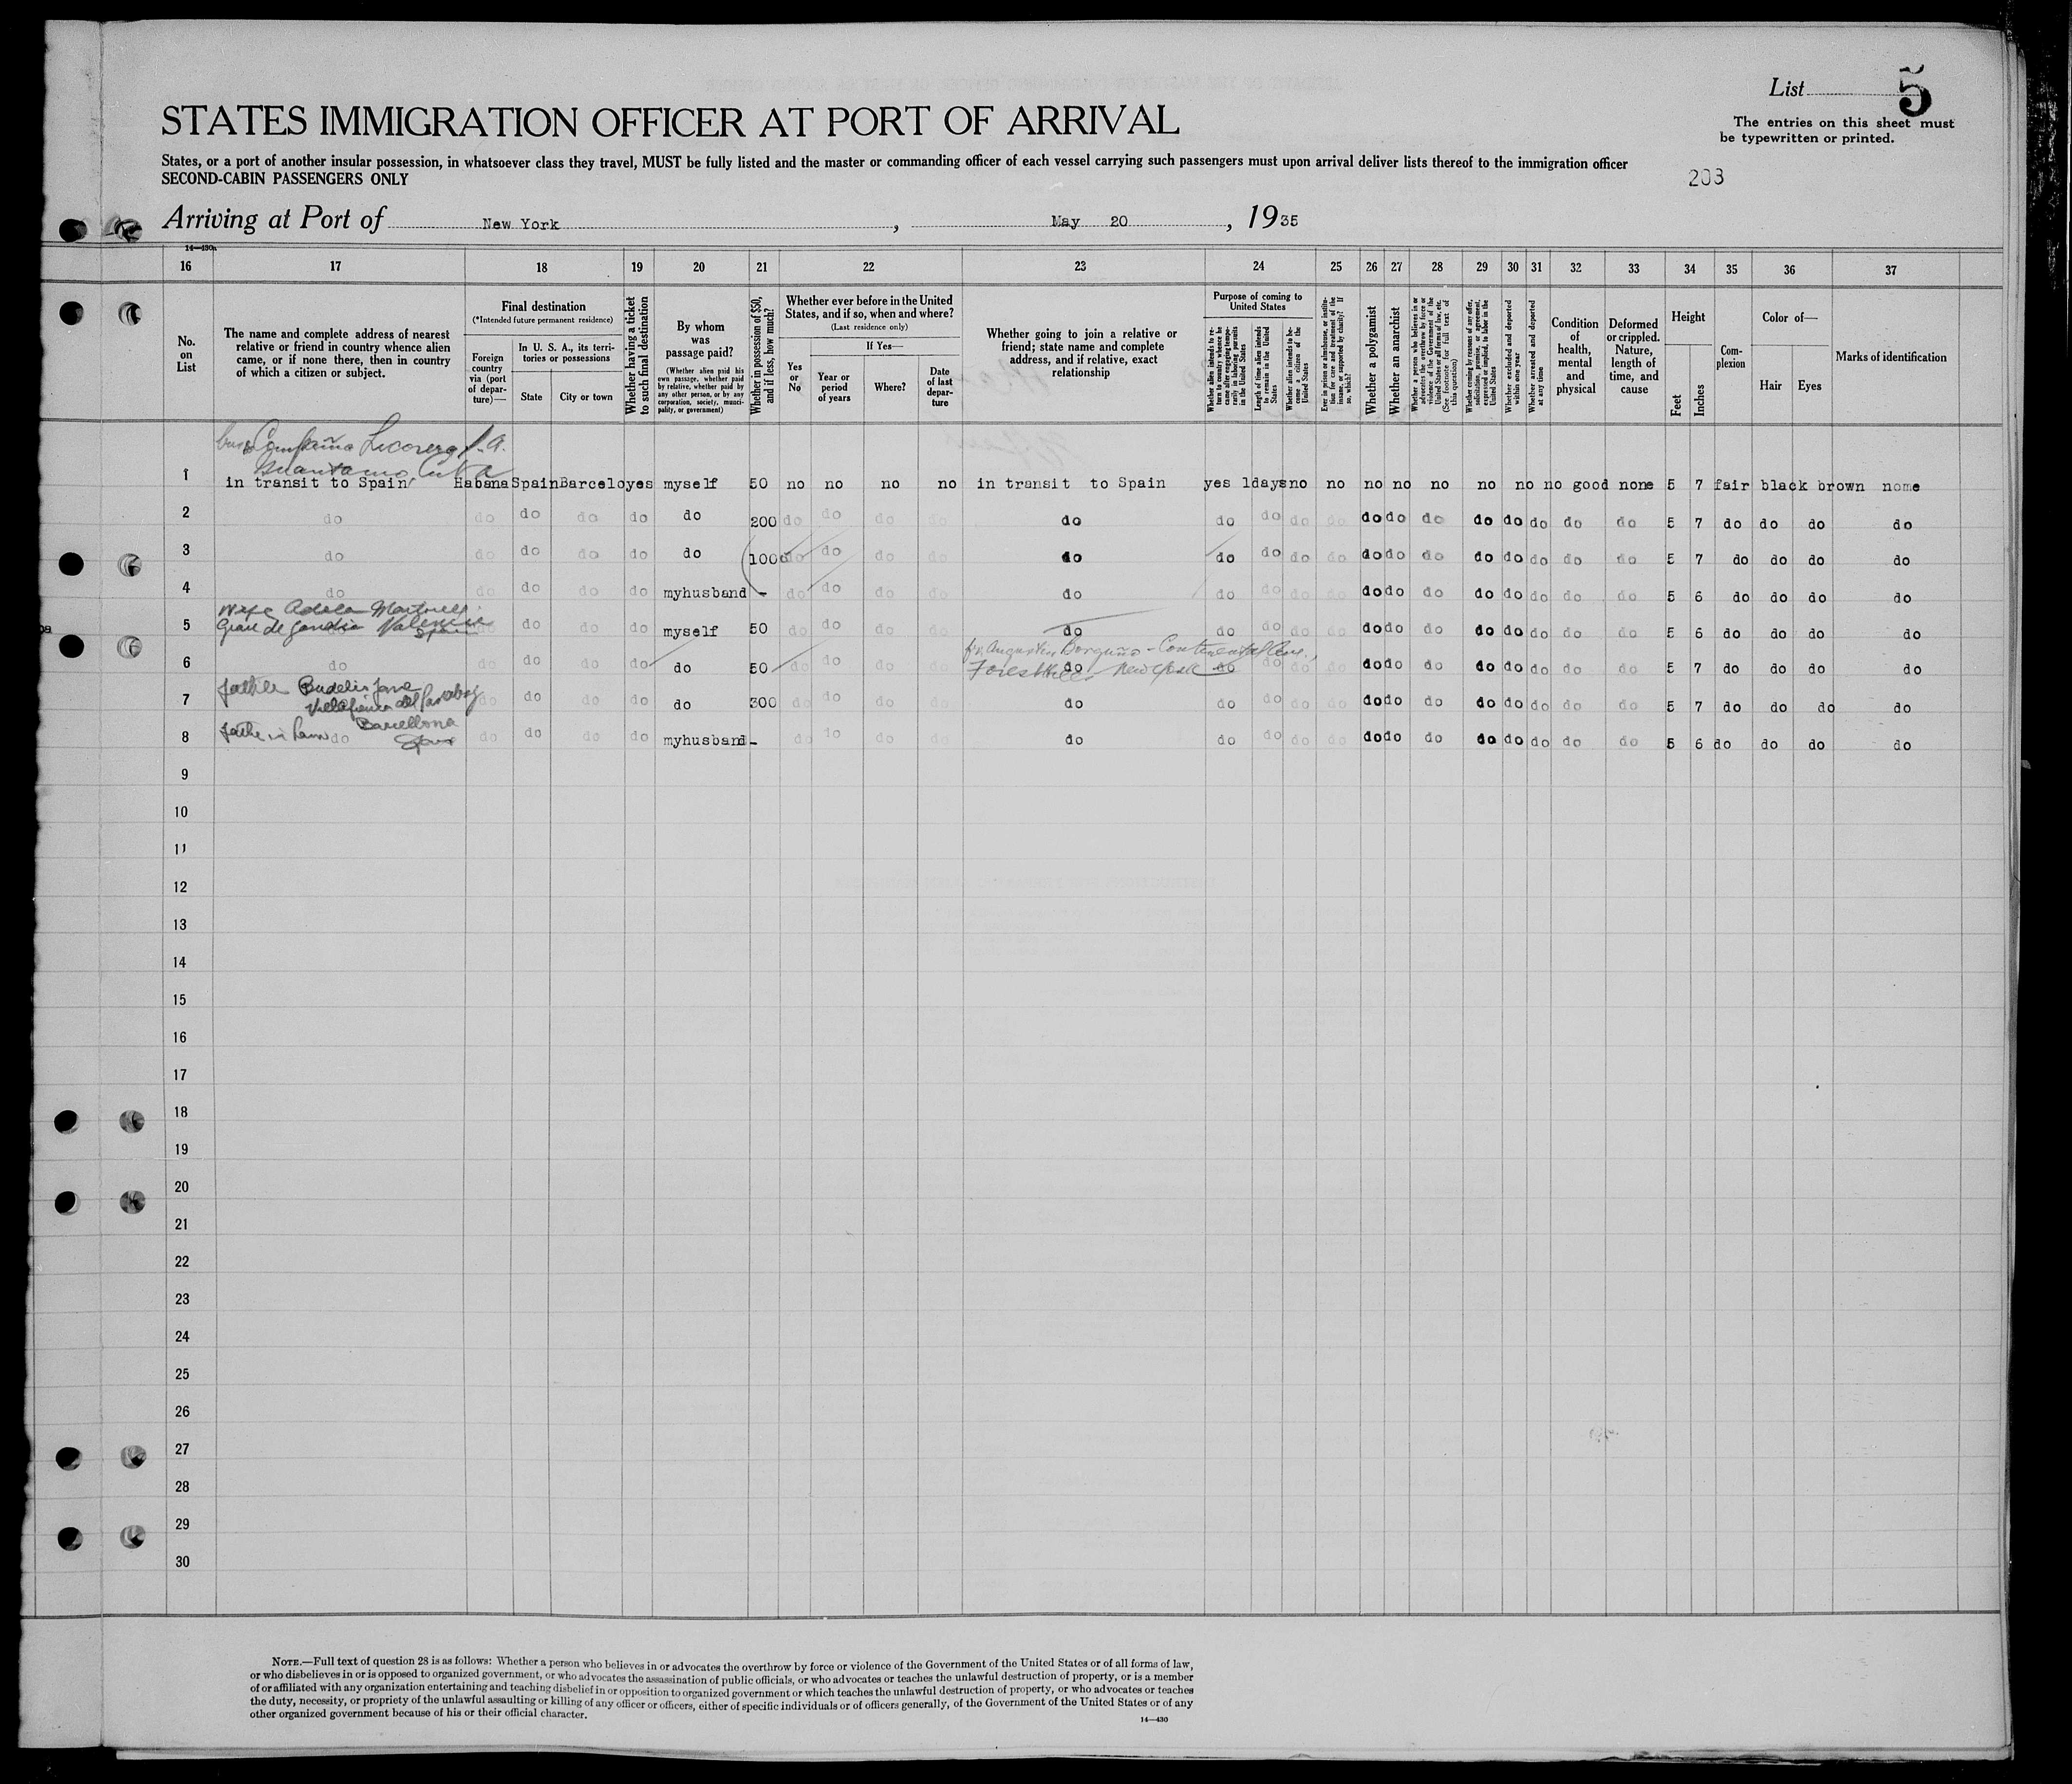 List 5
The entries on this sheet must
be typewritten or printed.
STATES IMMIGRATION OFFICER AT PORT OF ARRIVAL
States, or a port of another insular possession, in whatsoever class they travel, MUST be fully listed and the master or commanding officer of each vessel carrying such passengers must upon arrival deliver lists thereof to the immigration officer
SECOND-CABIN PASSENGERS ONLY
203
Arriving at Port of New York, May 20, 1935
14—430
16 17 18 19 20 21 22 23 24 25 26 27 28 29 30 31 32 33 34 35 36 37
No. on List
The name and complete address of nearest relative or friend in country whence alien came, or if none there, then in country of which a citizen or subject.
Final destination
(*Intended future permanent residence)
Foreign country via (port of departure)—
In U. S. A., its territories or possessions
State
City or town
Whether having a ticket to such final destination
By whom was passage paid?
(Whether alien paid his own passage, whether paid by relative, whether paid by any other person, or by any corporation, society, municipality, or government)
Whether in possession of $50, and if less, how much?
Whether ever before in the United States, and if so, when and where?
(Last residence only)
Yes or No
If Yes—
Year or period of years
Where?
Date of last departure
Whether going to join a relative or friend; state name and complete address, and if relative, exact relationship
Purpose of coming to United States
Whether alien intends to return to country whence he came after engaging temporarily in laboring pursuits in the United States
Length of time alien intends to remain in the United States
Whether alien intends to become a citizen of the United States
Ever in prison or almshouse, or institution for care and treatment of the insane, or supported by charity? If so, which?
Whether a polygamist
Whether an anarchist
Whether a person who believes in or advocates the overthrow by force or violence of the Government of the United States or all forms of law, etc. (See footnote for full text of this question)
Whether coming by reasons of any offer, solicitation, promise, or agreement, expressed or implied, to labor in the United States
Whether excluded and deported within one year
Whether arrested and deported at any time
Condition of health, mental and physical
Deformed or crippled. Nature, length of time, and cause
Height
Feet
Inches
Complexion
Color of—
Hair
Eyes
Marks of identification
Compañia Licorera S.A.
Guantanamo Cuba
1 in transit to Spain Habana Spain Barcelo yes myself 50 no no no no in transit to Spain yes 1days no no no no no no no no good none 5 7 fair black brown nome
2 do do do do do do 200 do do do do do do do do do do do do do do do do do 5 7 do do do do
3 do do do do do do 100 do do do do do do do do do do do do do do do do do 5 7 do do do do
4 do do do do do myhusband - do do do do do do do do do do do do do do do do do 5 6 do do do do
wife Adela Martinez
Grau de Gandia Valencia
Spain
5 do do do do myself 50 do do do do do do do do do do do do do do do do do 5 6 do do do do
fr. Augustin Borguño - Continental Ave.,
Forest Hills New York
6 do do do do do do 50 do do do do do do do do do do do do do do do do do 5 7 do do do do
father Budelio Jane
Villafranca del
Barcellona
Spain
7 do do do do do 300 do do do do do do do do do do do do do do do do do 5 7 do do do do
father in law
8 do do do do do myhusband - do do do do do do do do do do do do do do do do 5 6 do do do do
9
10
11
12
13
14
15
16
17
18
19
20
21
22
23
24
25
26
27
28
29
30
NOTE.—Full text of question 28 is as follows: Whether a person who believes in or advocates the overthrow by force or violence of the Government of the United States or of all forms of law,
or who disbelieves in or is opposed to organized government, or who advocates the assassination of public officials, or who advocates or teaches the unlawful destruction of property, or is a member
of or affiliated with any organization entertaining and teaching disbelief in or opposition to organized government or which teaches the unlawful destruction of property, or who advocates or teaches
the duty, necessity, or propriety of the unlawful assaulting or killing of any officer or officers, either of specific individuals or of officers generally, of the Government of the United States or of any
other organized government because of his or their official character.
14—430